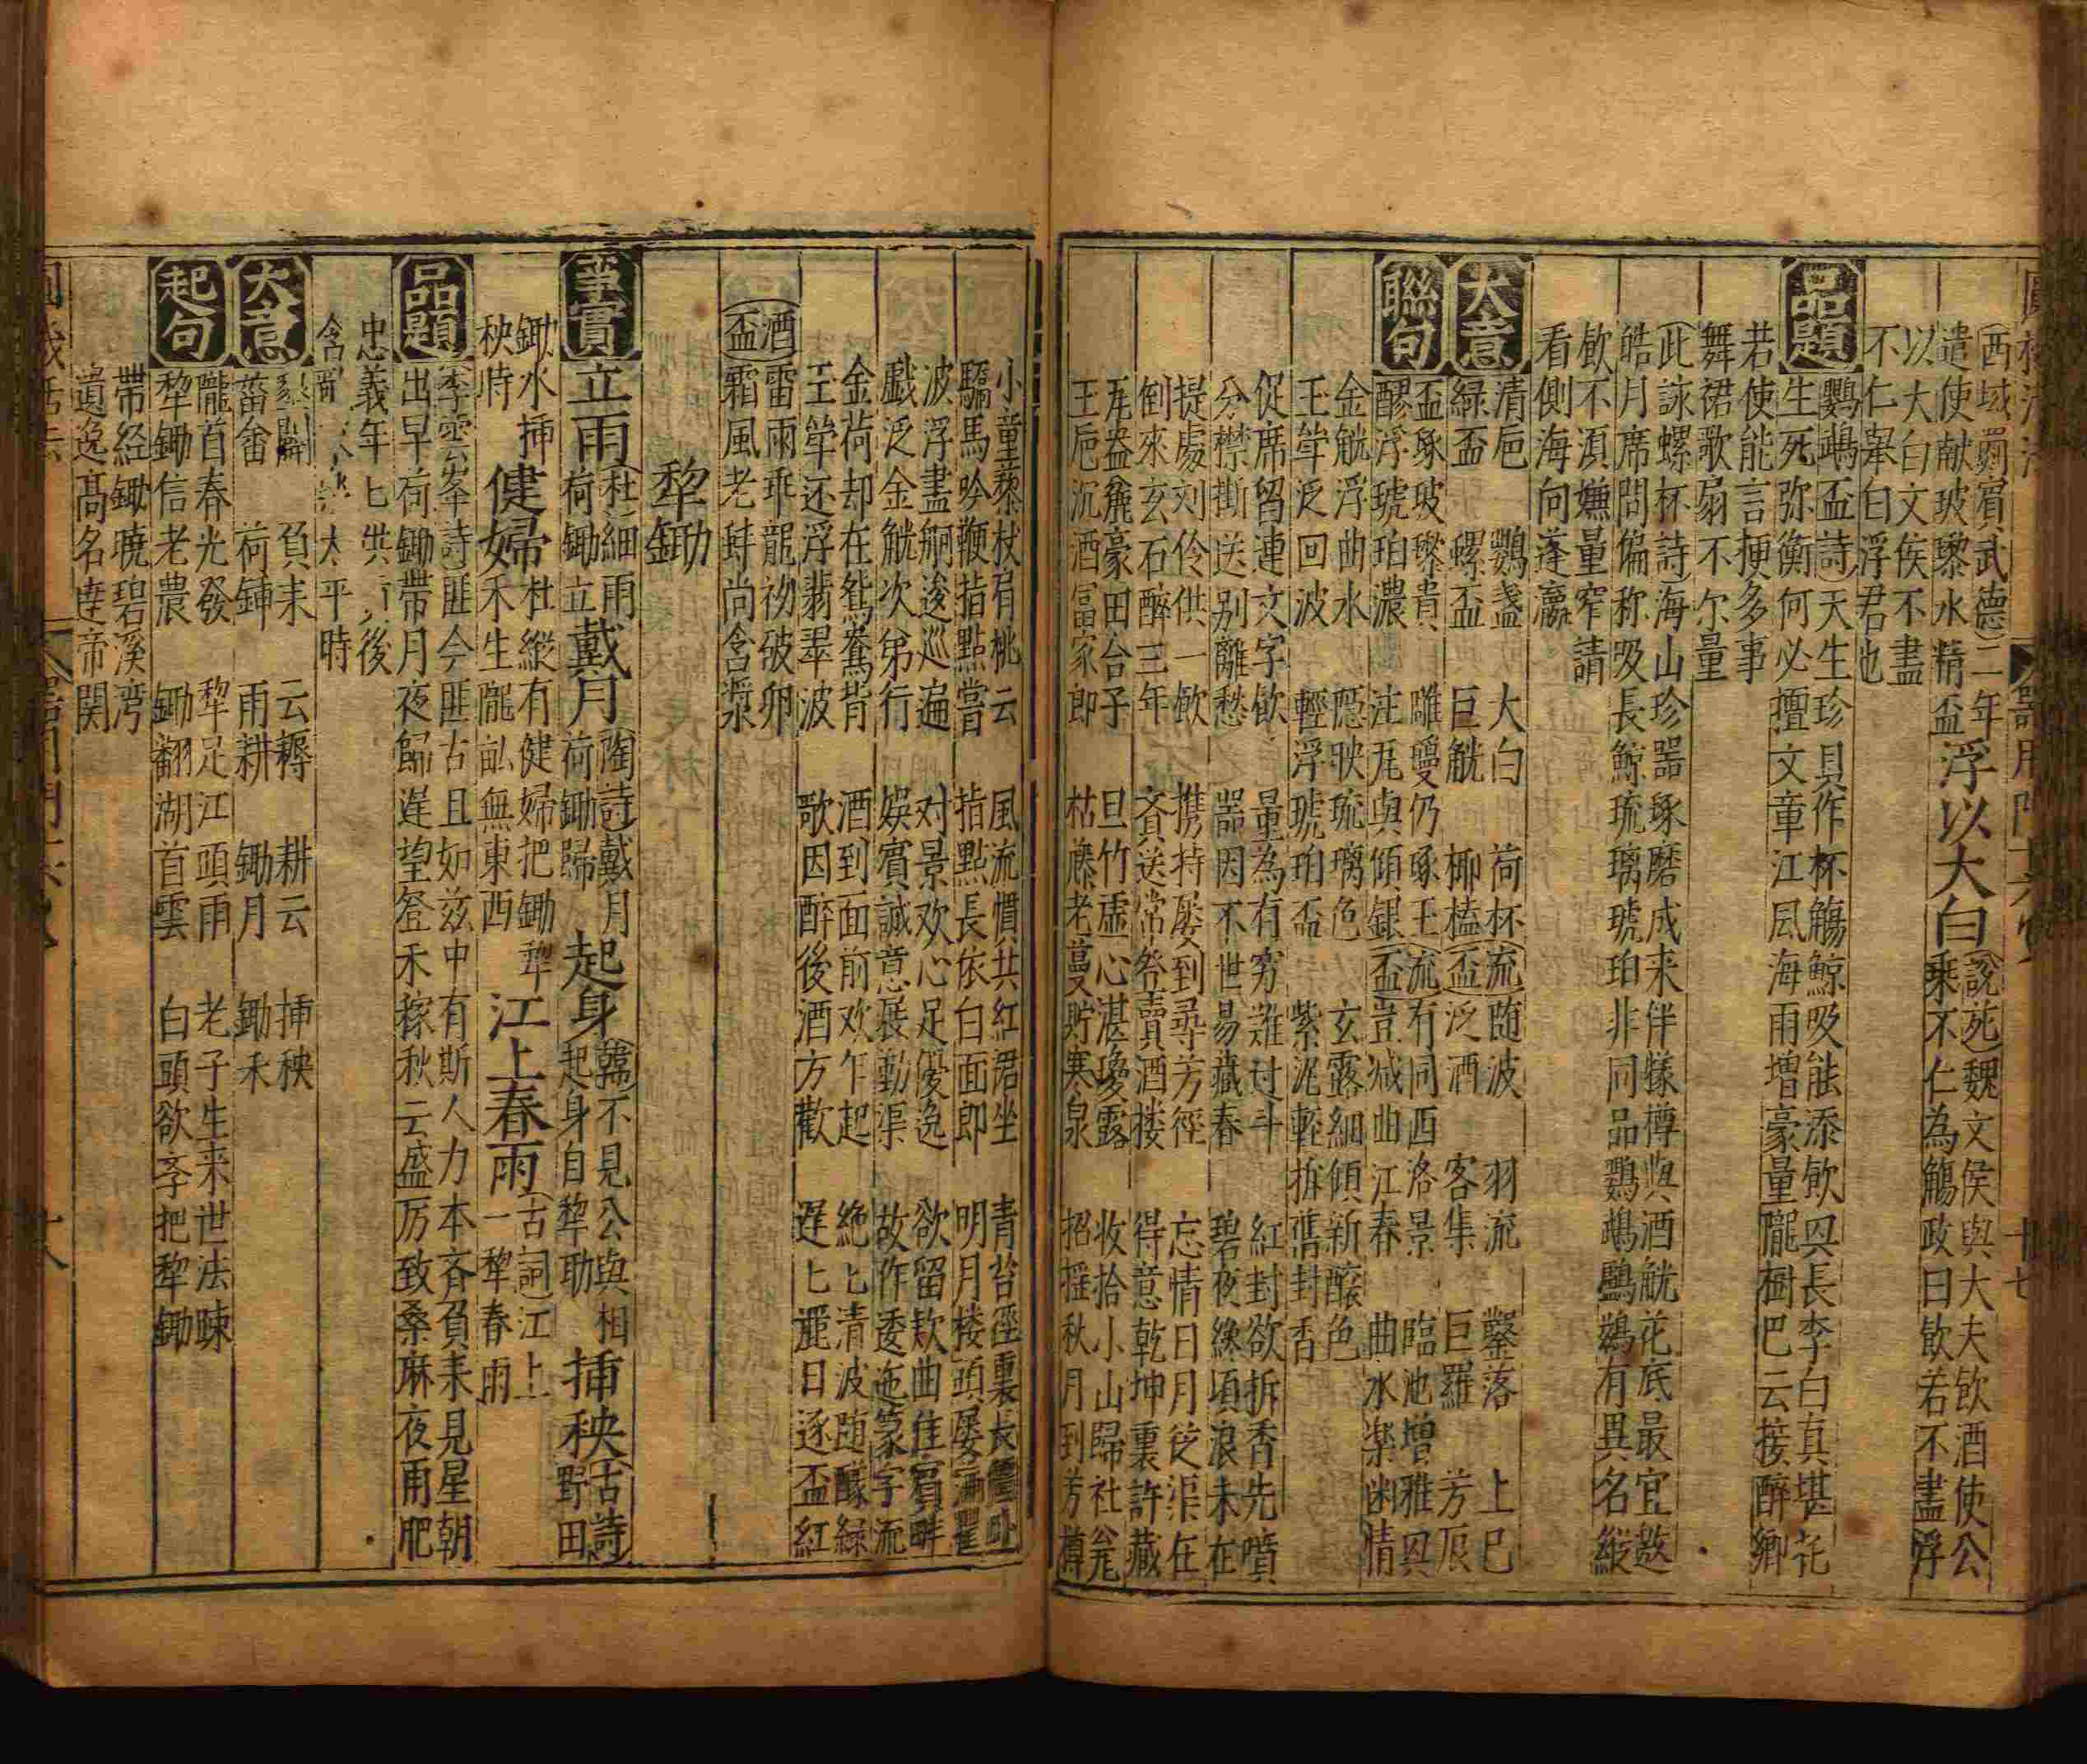 西域罽賓武德二年
遣使献玻瓈水精盃
浮以大白
說苑魏文侯與大夫飲酒使公
乘不仁為觴政曰飲若不盡浮
以大白文侯不盡
不仁舉白浮君也
品題
鸚鵡盃詩天生珍具作杯觴鯨吸能添飲興長李白真堪花
生死弥衡何必擅文章江風海雨增豪量隴樹巴云接醉鄉
若使能言挭多事
舞裙歌扇不尔量
此詠螺杯詩海山珍器琢磨成来伴㼾樽與酒觥花底最宜邀
皓月席問偏称吸長鯨琉璃琥珀非同品鸚鵡鸕鷀有異名縱
飲不湏嫌量窄請
看側海向蓬瀛
大意
清巵 鸚盞 大白 荷杯 流随波 羽流 鑿落 上巳
緑盃 螺盃 巨觥 椰榼 盃泛酒 客集 巨羅 芳辰
聯句
盃琢玻瓈貴 雕鏤仍琢玉 流有同西洛景 臨池增雅興
醪浮琥珀濃 注尾與傾銀 盃豈减曲江春 曲水樂幽情
金觥浮曲水 隠映琉璃色 玄露細傾新釀色
玉斝泛回波 輕浮琥珀盃 紫泥輕拆舊封香
促席留連文字飲 量為有窮難过斗 紅封欲拆香先噴
分襟斷送别離愁 器因不世易藏春 碧夜纔頃浪未在
提處刘伶供一飲 携持屡到尋芳徑 忘情日月從渠在
倒來玄石醉三年 賫送常咎賣酒楼 得意乾坤裏許藏
瓦盎麄豪田台子 旦竹虚心湛瓊露 收拾小山歸社瓮
玉巵沉酒冨家郎 枯藤老蔓貯寒泉 招揺秋月到芳樽
小童藜杖肩桃云 風流慣共紅裙坐 青苔徑裏長
驕馬吟鞭指點嘗 指點長依白面郎 明月楼頭屡
波浮盡舸逡巡遍 对景欢心足優逸 欲留欵曲佳賓畔
戲泛金觥次弟行 娱賓誠意展勤渠 故作逶迤篆字流
金荷却在鴛鴦背 酒到面前欢乍起 絶匕清波随釀緑
玉斝还浮翡翠波 歌因醉後酒方歡 遅匕麗日逐盃紅
酒雷雨乖龍初破卵
盃霜風老蚌尚含漿
犂鋤
事實
立雨
杜細雨
荷鋤立
戴月
陶詩戴月
荷鋤歸
起身
韓不見公與相
起身自犂助
插秧
古詩
野田
鋤水插
秧時
健婦
杜縱有健婦把鋤犂
禾生隴畝無東西
江上春雨
古詞江上
一犂春雨
品題
李雲峯詩匪今匪古且如兹中有斯人力本斉負耒見星朝
出早荷鋤帶月夜歸遅望登禾稼秋云盛厉致桑麻夜雨肥
忠義年匕
太平時
大意
負耒 云耨 耕云 插秧
菑畬 荷鍤 雨耕 鋤月 鋤禾
起句
隴首春光發 犂足江頭雨 老子生来世法疎
犂鋤信老農 鋤翻湖首雲 白頭欲斈把犂鋤
帶経鋤曉碧溪湾
遺逸髙名達帝関